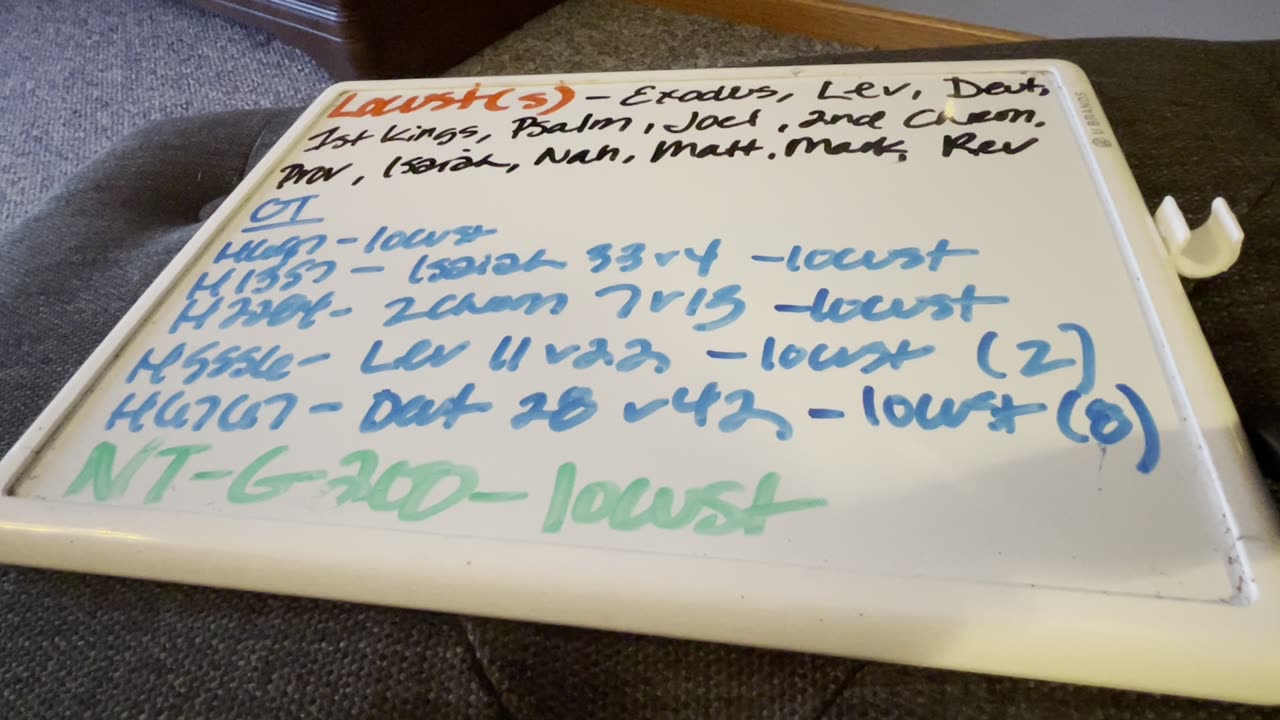 Locust(s) - Exodus, Lev, Deut,
1st Kings, Psalm, Joel, 2nd Chron,
Prov, Isaiah, Nah, Matt, Mark, Rev
OT
H697 - locust
H1357 - Isaiah 33 v 4 - locust
H2284 - 2 Chron 7 v 13 - locust
H5556 - Lev 11 v 22, - locust (2)
H6767 - Deut 28 v 42, - locust (8)
NT - G - 200 - locust
U BRANDS